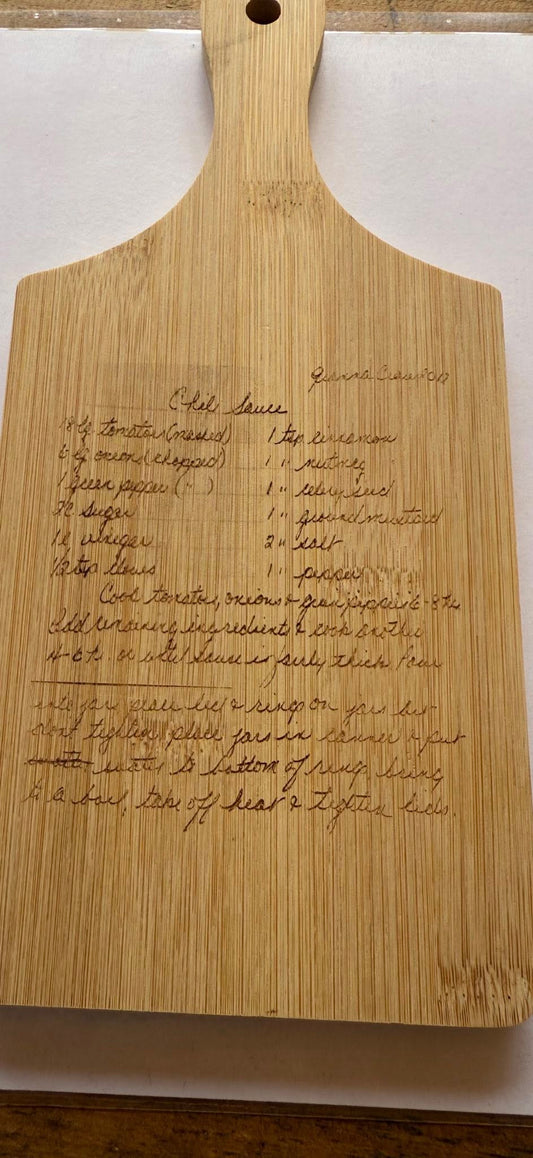 Chili Sauce
18 lg tomatoes (mashed) 1 tsp cinnamon
6 lg onions (chopped) 1 " nutmeg
1 green pepper ( " ) 1 " celery seed
sugar 1 " ground mustard
vinegar 2 " salt
1/2 tsp cloves 1 " pepper
Cook tomatoes, onions & green peppers 6-8 hr
Add remaining ingredients & cook another
4-6 h. or until sauce is fairly thick Pour
into jars place lids & rings on jars but
dont tighten place jars in canner & put
water to bottom of ring, bring
to a boil, take off heat & tighten lids.